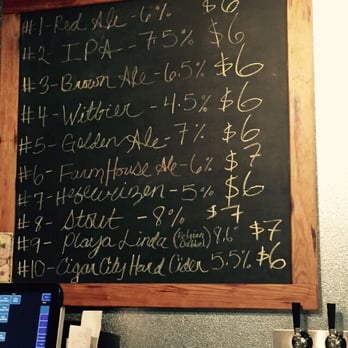 #1-Red Ale - 6% $6
#2 IPA - 7.5% $6
#3-Brown Ale - 6.5% $6
#4-Witbier - 4.5% $6
#5-Golden Ale - 7% $6
#6-FarmHouse Ale - 6% $7
#7-Hefeweizen - 5% $6
#8- Stout - 8% $7
#9- Playa Linda 8.6% $7
#10-Cigar City Hard Cider 5.5% $6